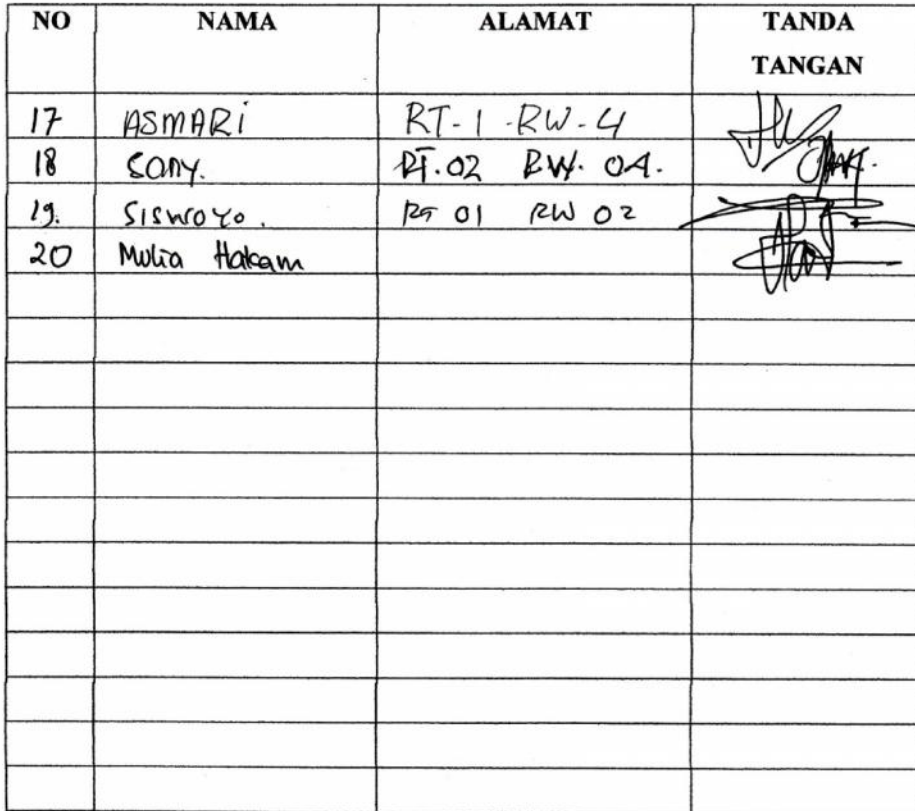 NO NAMA ALAMAT TANDA TANGAN
17 ASMARI RT-1-RW-4
18 Sony. RT.02 RW. 04.
19. SISWOYO. RT 01 RW 02
20 Mulia Hakam